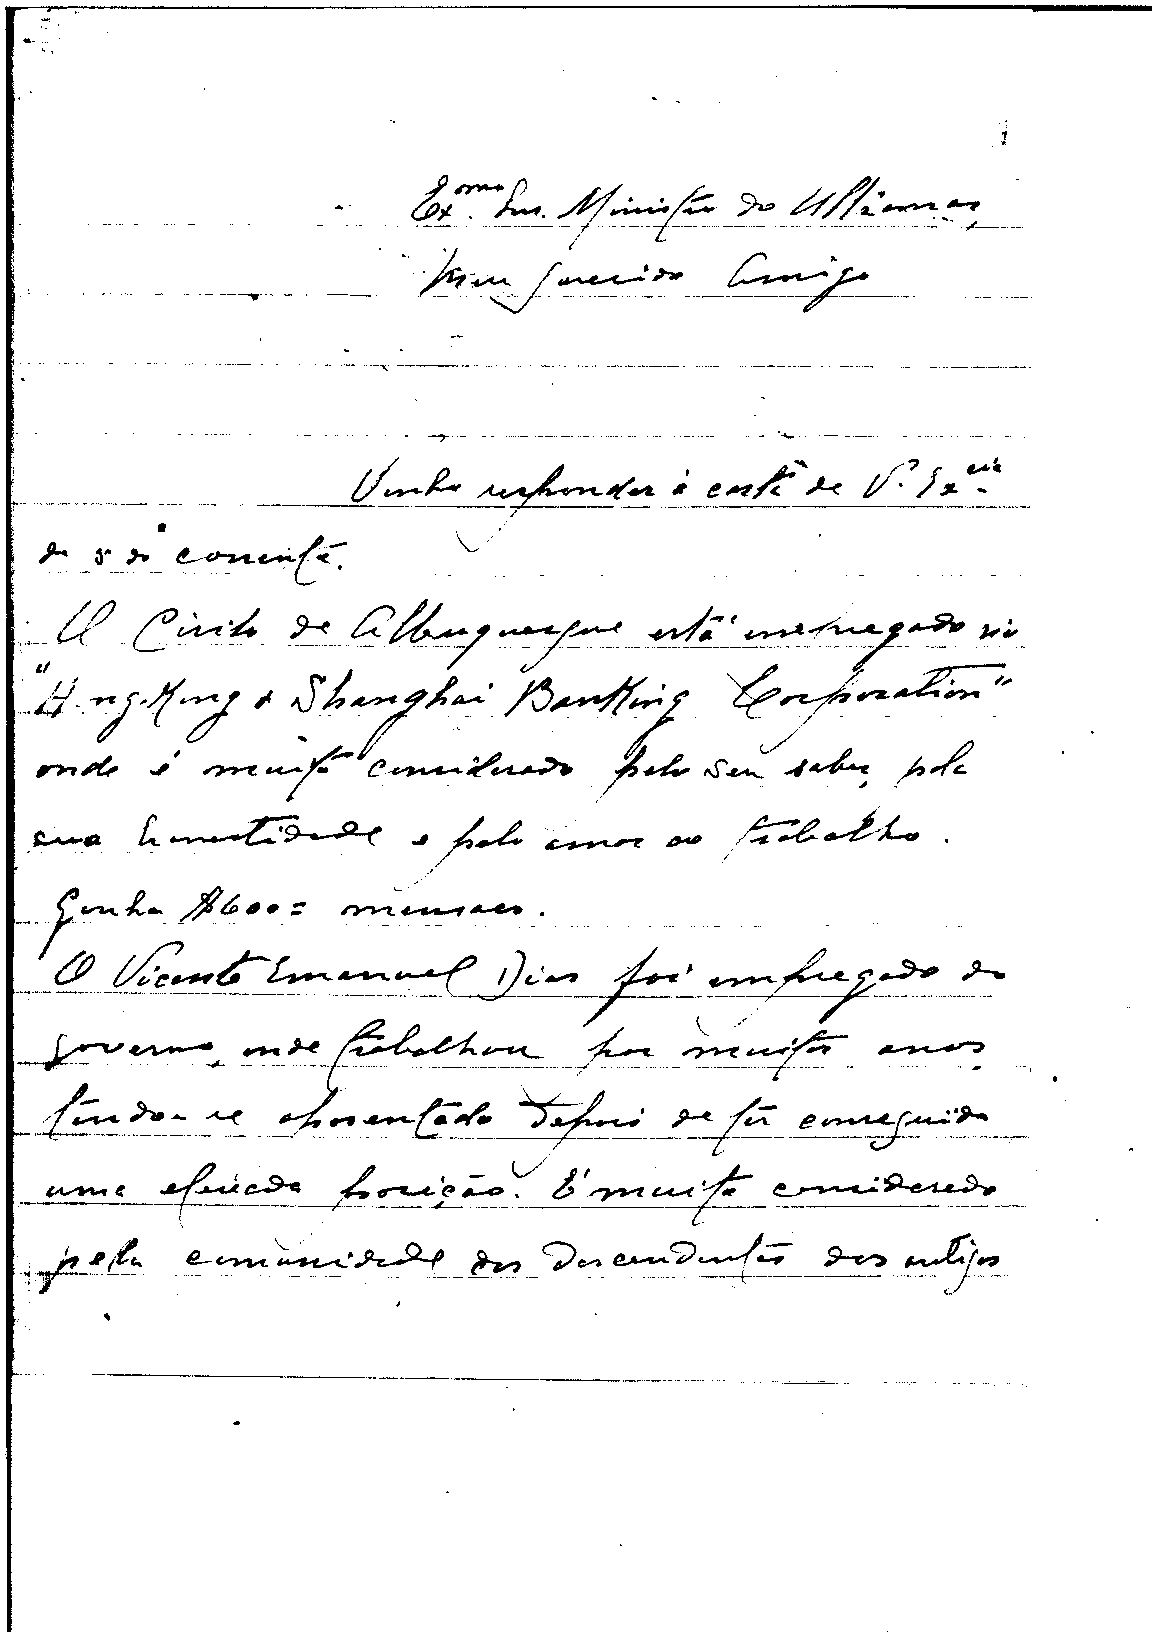 1
Exmo. Snr. Ministro do Ultramar,
Meu querido Amigo
Venho responder à carta de V. Excia.
de 5 do corrente.
O Cirilo de Albuquerque está empregado no
"Hong-Kong & Shanghai Banking Corporation"
onde é muito considerado pelo seu saber, pela
sua honestidade e pelo amor ao trabalho.
Ganha $600= mensaes.
O Vicente Emanuel Dias foi empregado do
governo, onde trabalhou por muitos anos,
tendo-se aposentado depois de ter conseguido
uma elevada posição. É muito considerado
pela comunidade dos descendentes dos antigos